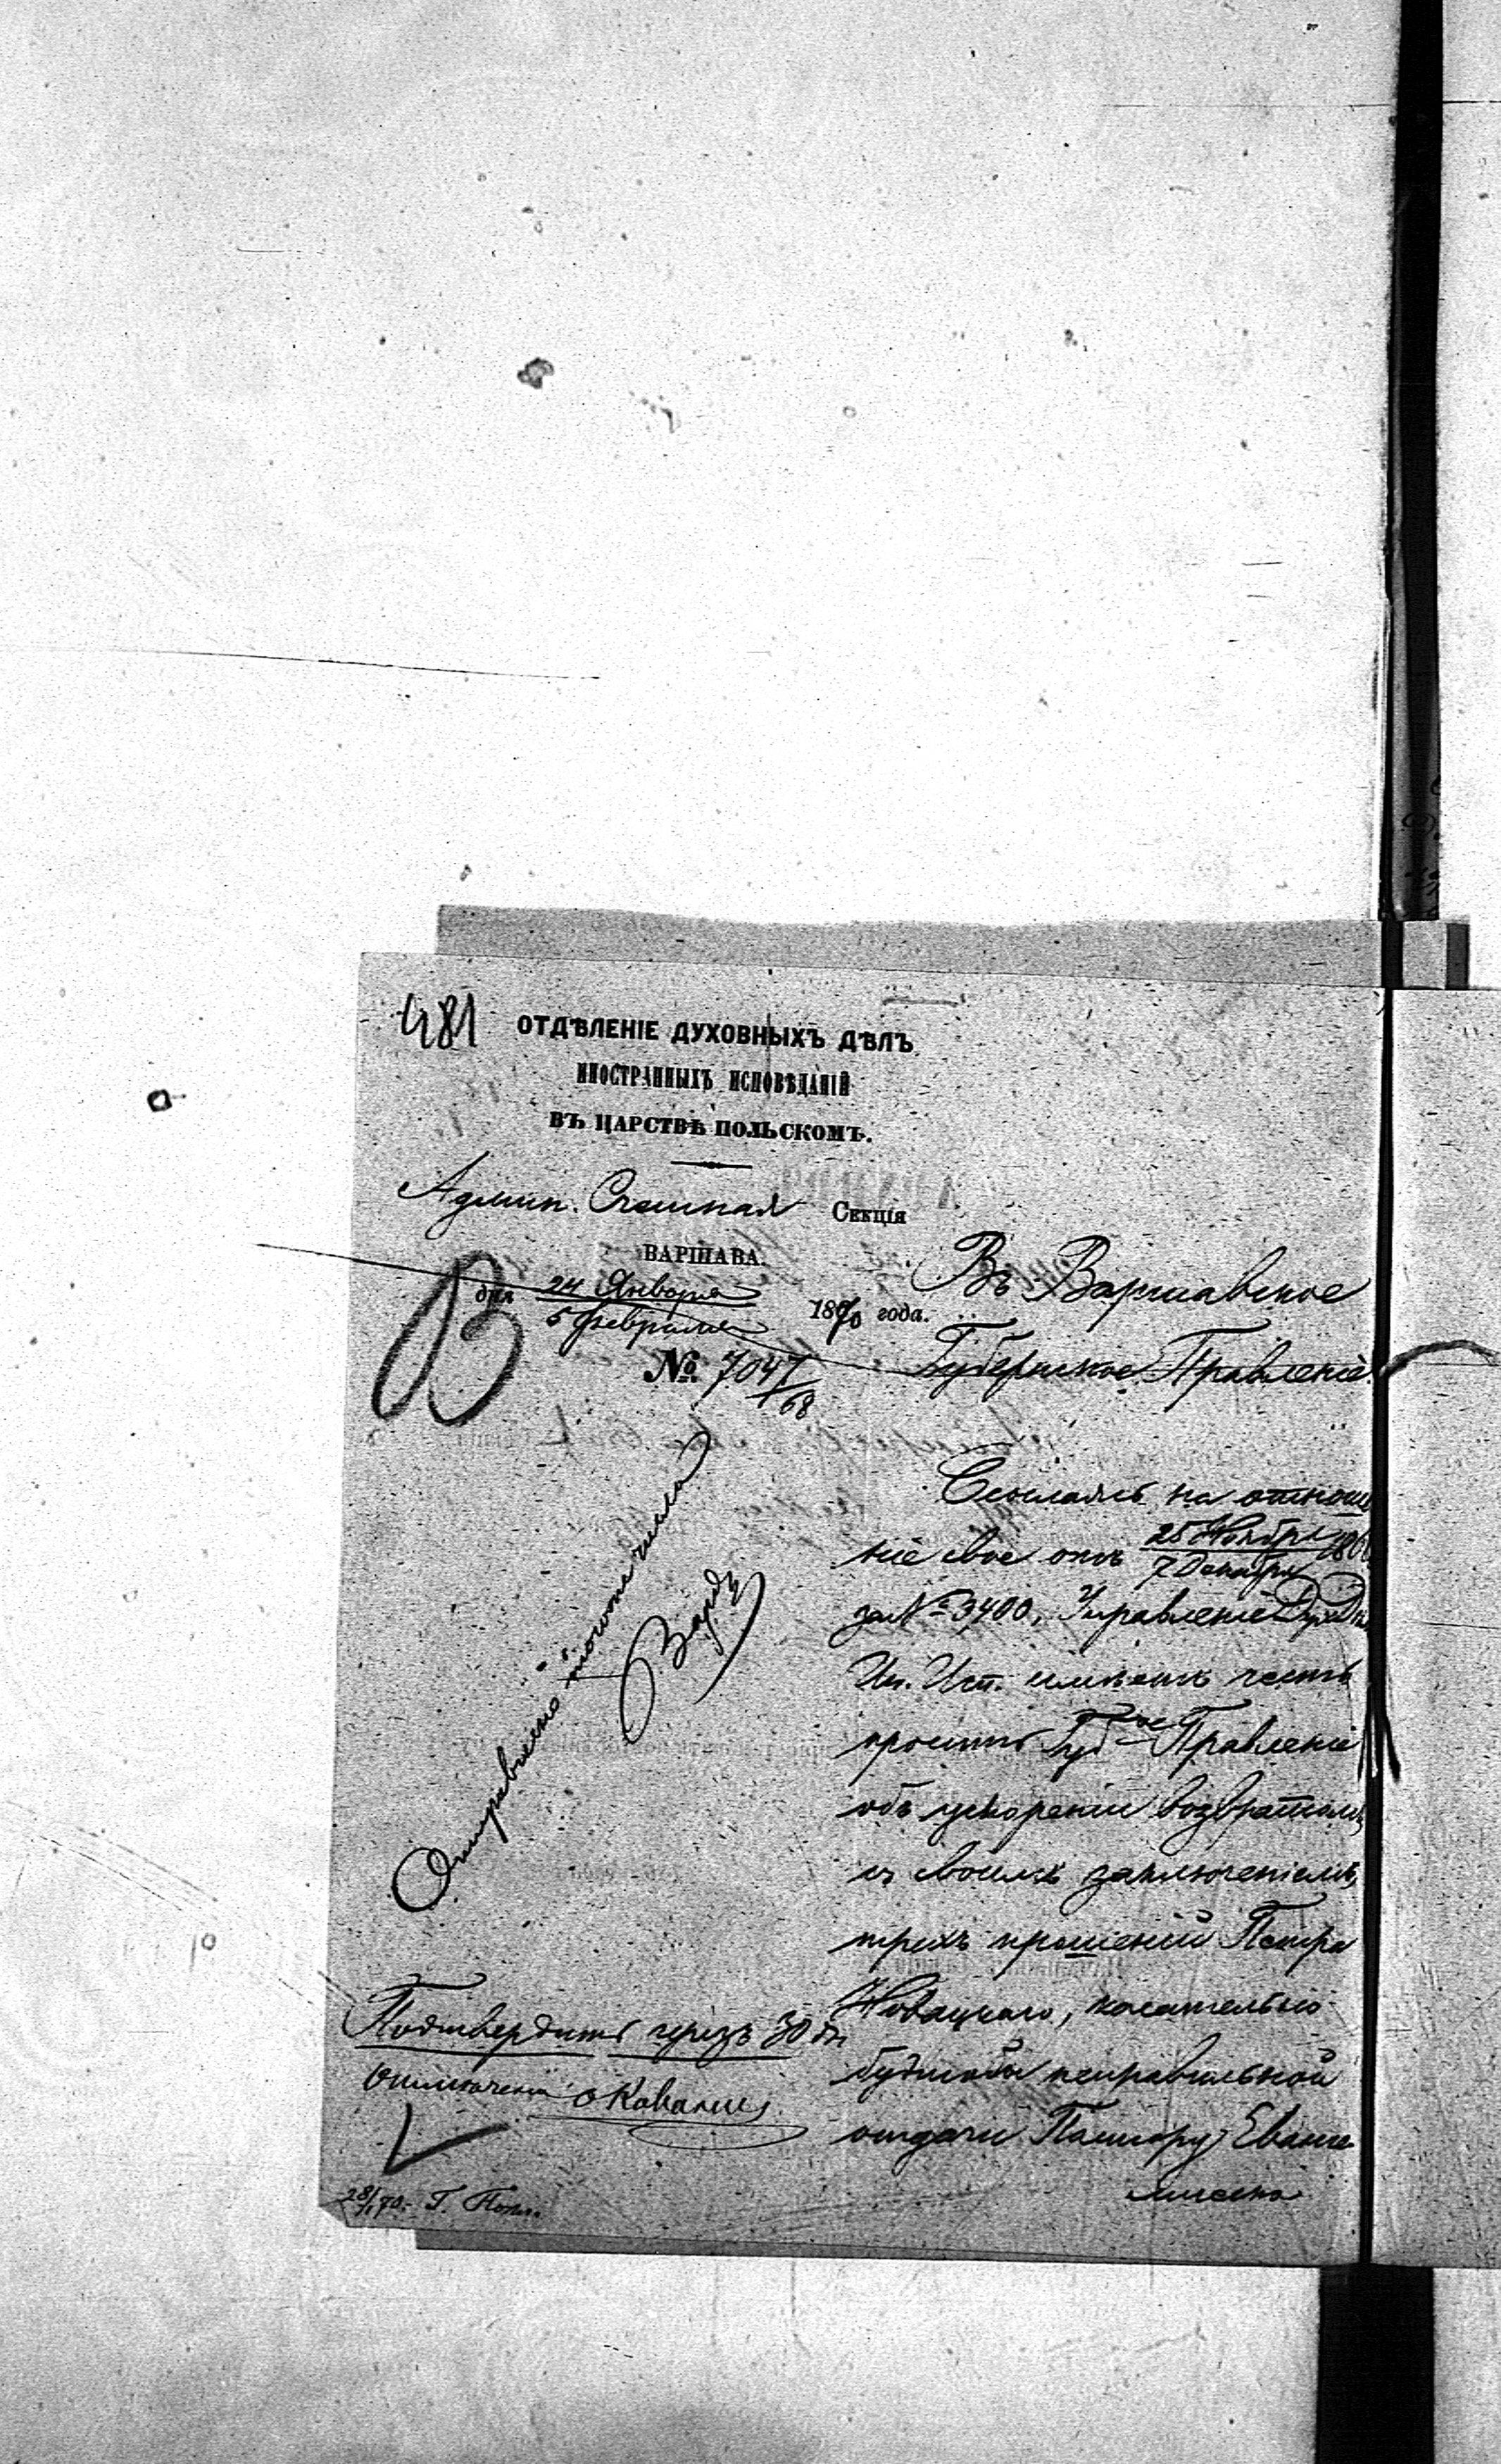 481
ОТДѢЛЕНІЕ ДУХОВНЫХЪ ДѢЛЪ
ИНОСТРАННЫХЪ ИСПОВѢДАНІЙ
ВЪ ЦАРСТВѢ ПОЛЬСКОМЪ.
Админ. Счетная Секція
ВАРШАВА.
дня 24 Января
5 Февраля 1870 года.
№ 7047/68
Въ Варшавское
Губернское Правленіе.
Ссылаясь на отноше
ніе свое отъ 25 Ноября
7 Декабря 186
за № 3400, Управленіе Дух. Д.
Ин. Исп. имѣетъ честь
просить Губ-ое Правленіе
объ ускореніи возвратомъ,
съ своимъ заключеніемъ,
трехъ прошеній Петра
Новацкаго, касательно
будтобы неправильной
отдачи Пастору Еванге
лическо
Отправлено тогоже числа
Подтвердить черезъ 30 дн